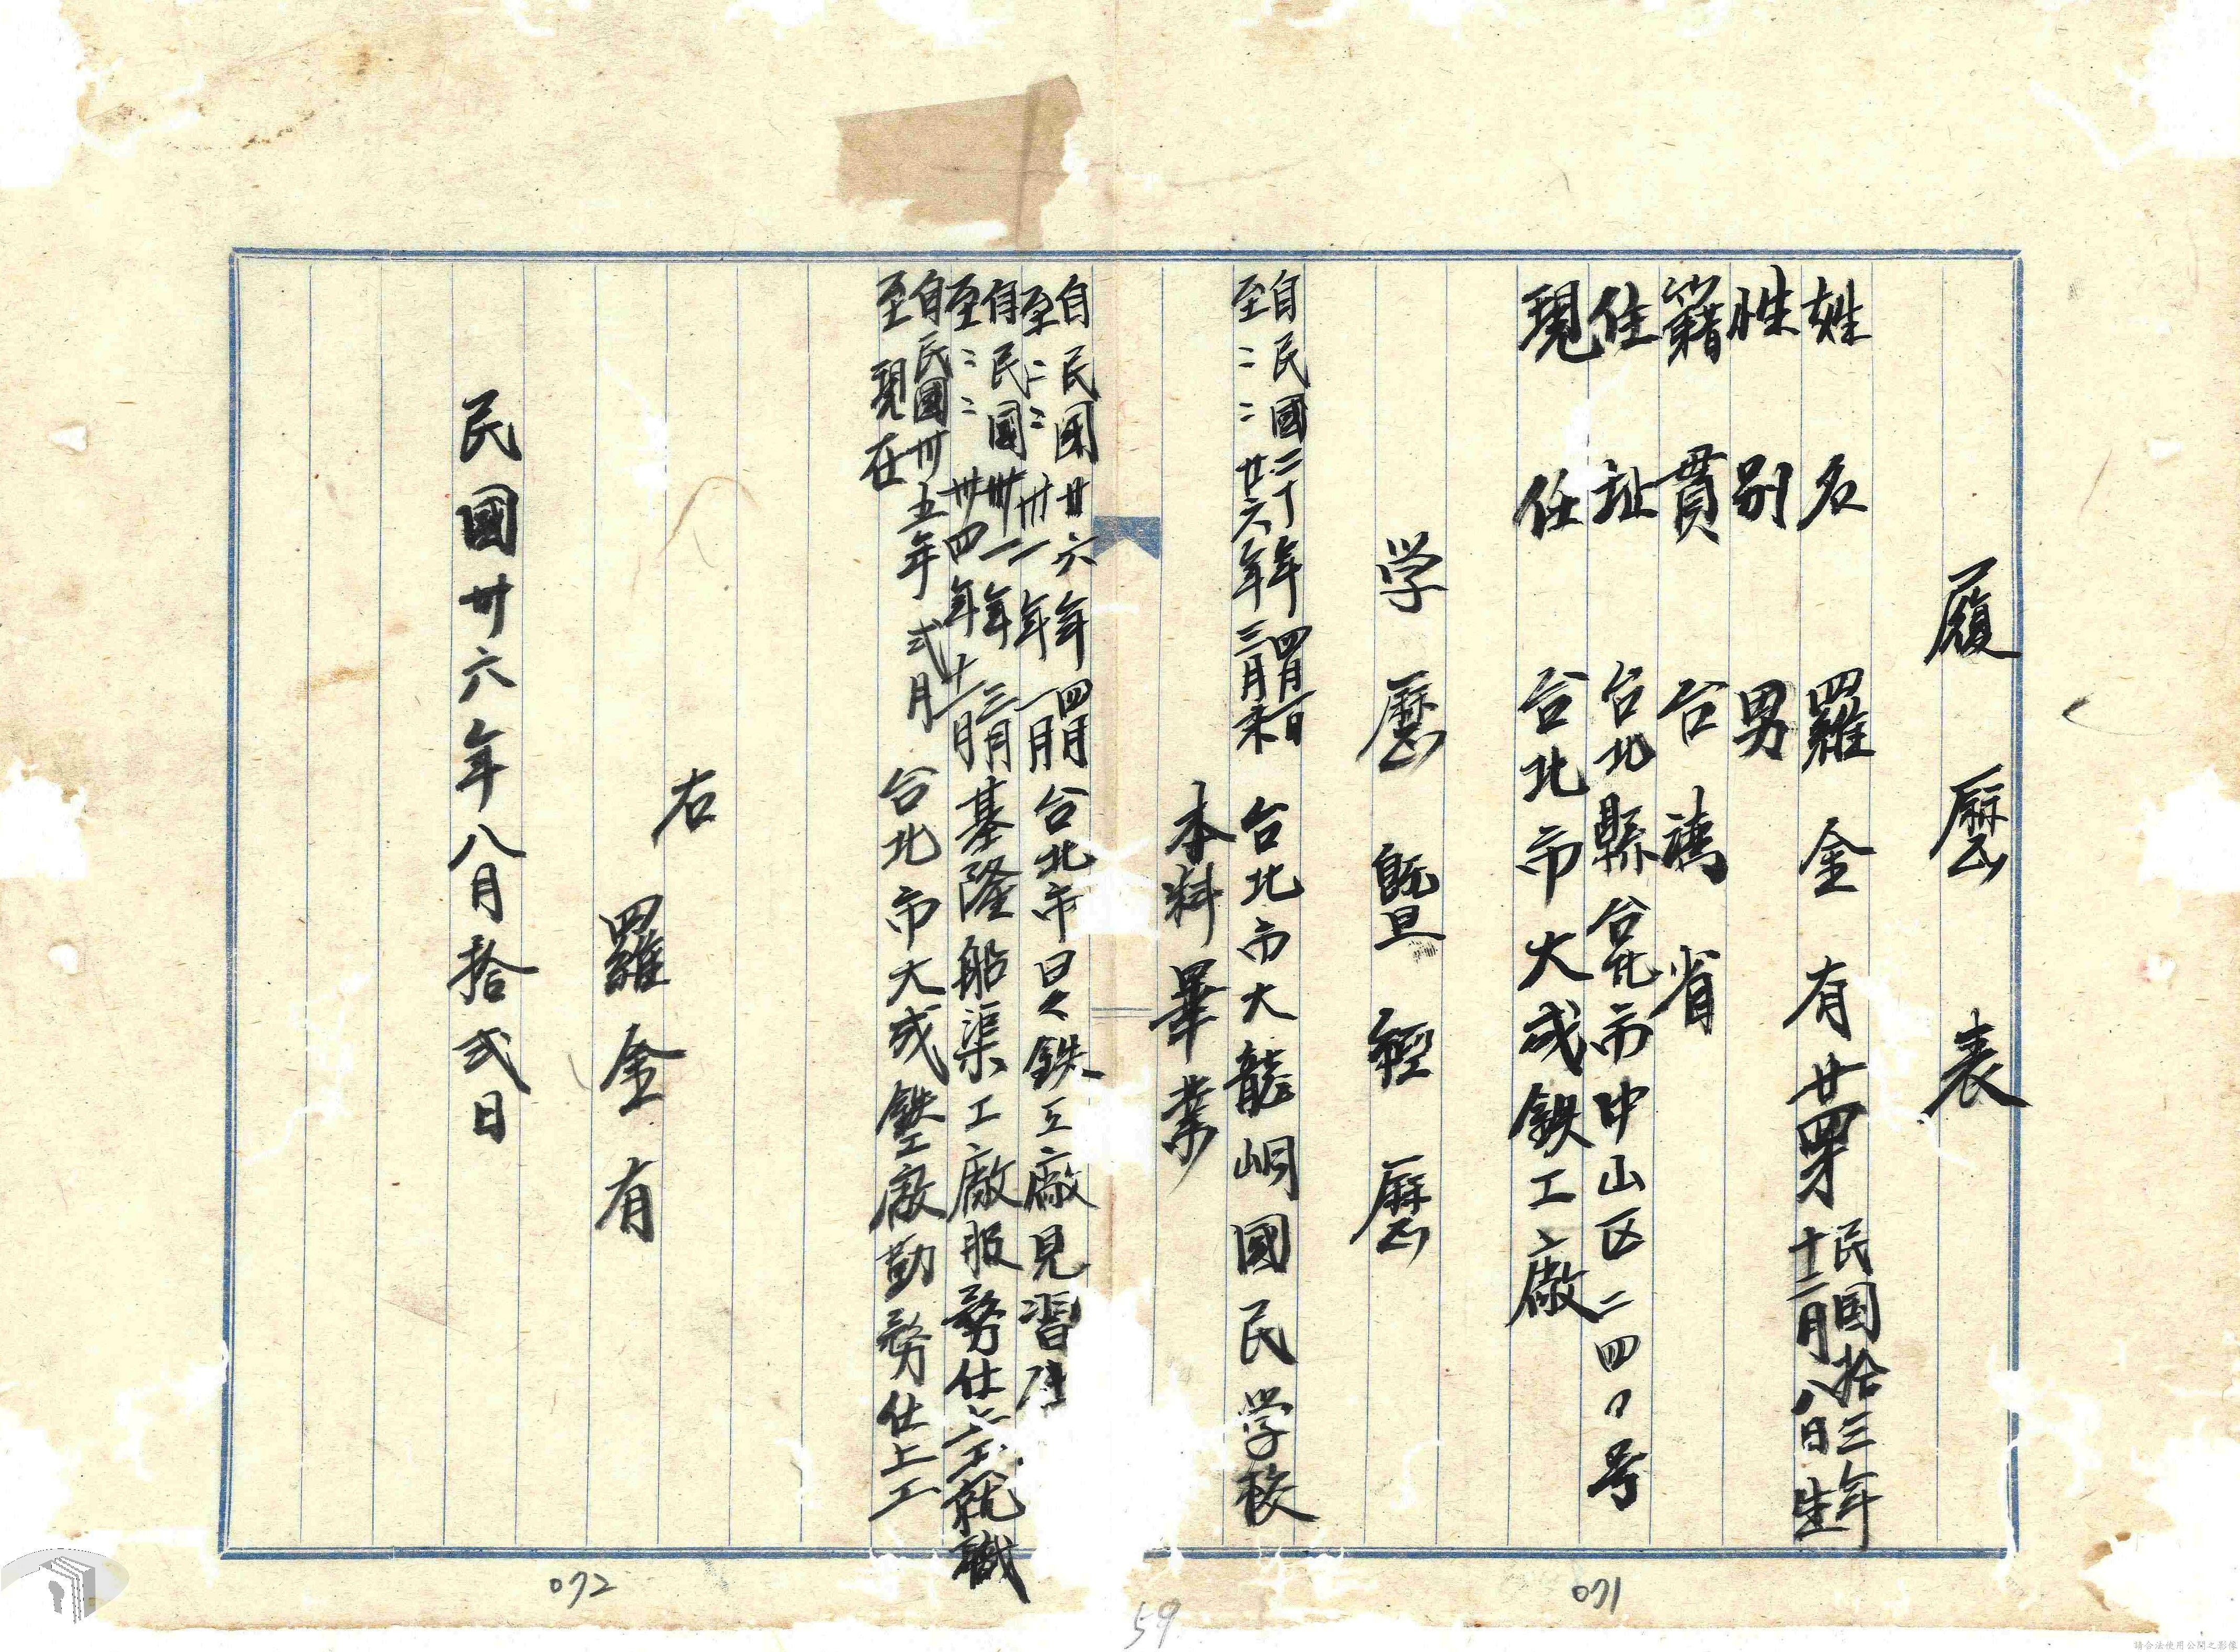 履歷表
姓名 羅金有 廿四才 民国拾三年
十二月八日生
性别 男
籍貫 台湾省
住址 台北縣台北市中山区二四〇号
現任 台北市大成鉄工廠
学歷暨經歷
自民國二十年四月一日
至〃〃廿六年三月末 台北市大龍峒國民学校
本科畢業
自民國廿六年四月
至〃〃卅二年一月 台北市日之鉄工廠見習
自民國卅二年三月
至〃〃卅四年十一月 基隆船渠工廠服務仕上工就職
自民國卅五年弍月
至現在 台北市大成鉄工廠勤務仕上工
右
羅金有
民國卅六年八月拾弍日
072
071
59
請合法使用公開之影像